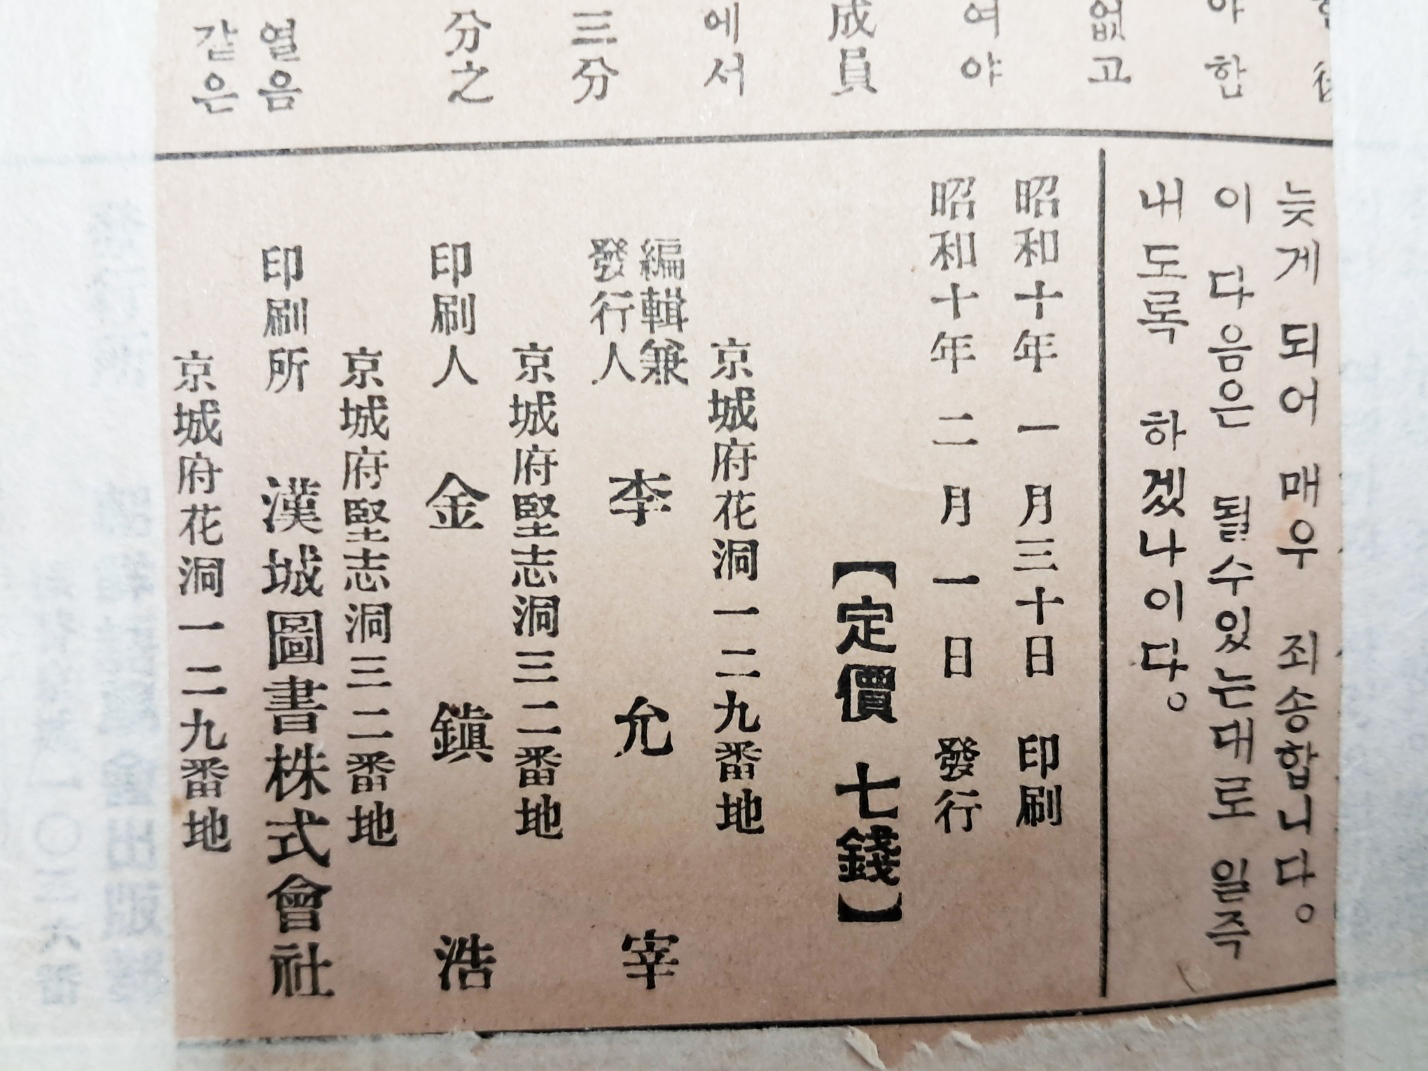 야 함
없고
여야
成員
에서
三分
分之
열음
같은
늦게 되어 매우 죄송합니다。
이 다음은 될수있는대로 일즉
내도록 하겠나이다。
昭和十年 一月三十日 印刷
昭和十年 二月一日 發行
【定價 七錢】
京城府花洞一二九番地
編輯兼
發行人 李允宰
京城府堅志洞三二番地
印刷人 金鎭浩
京城府堅志洞三二番地
印刷所 漢城圖書株式會社
京城府花洞一二九番地